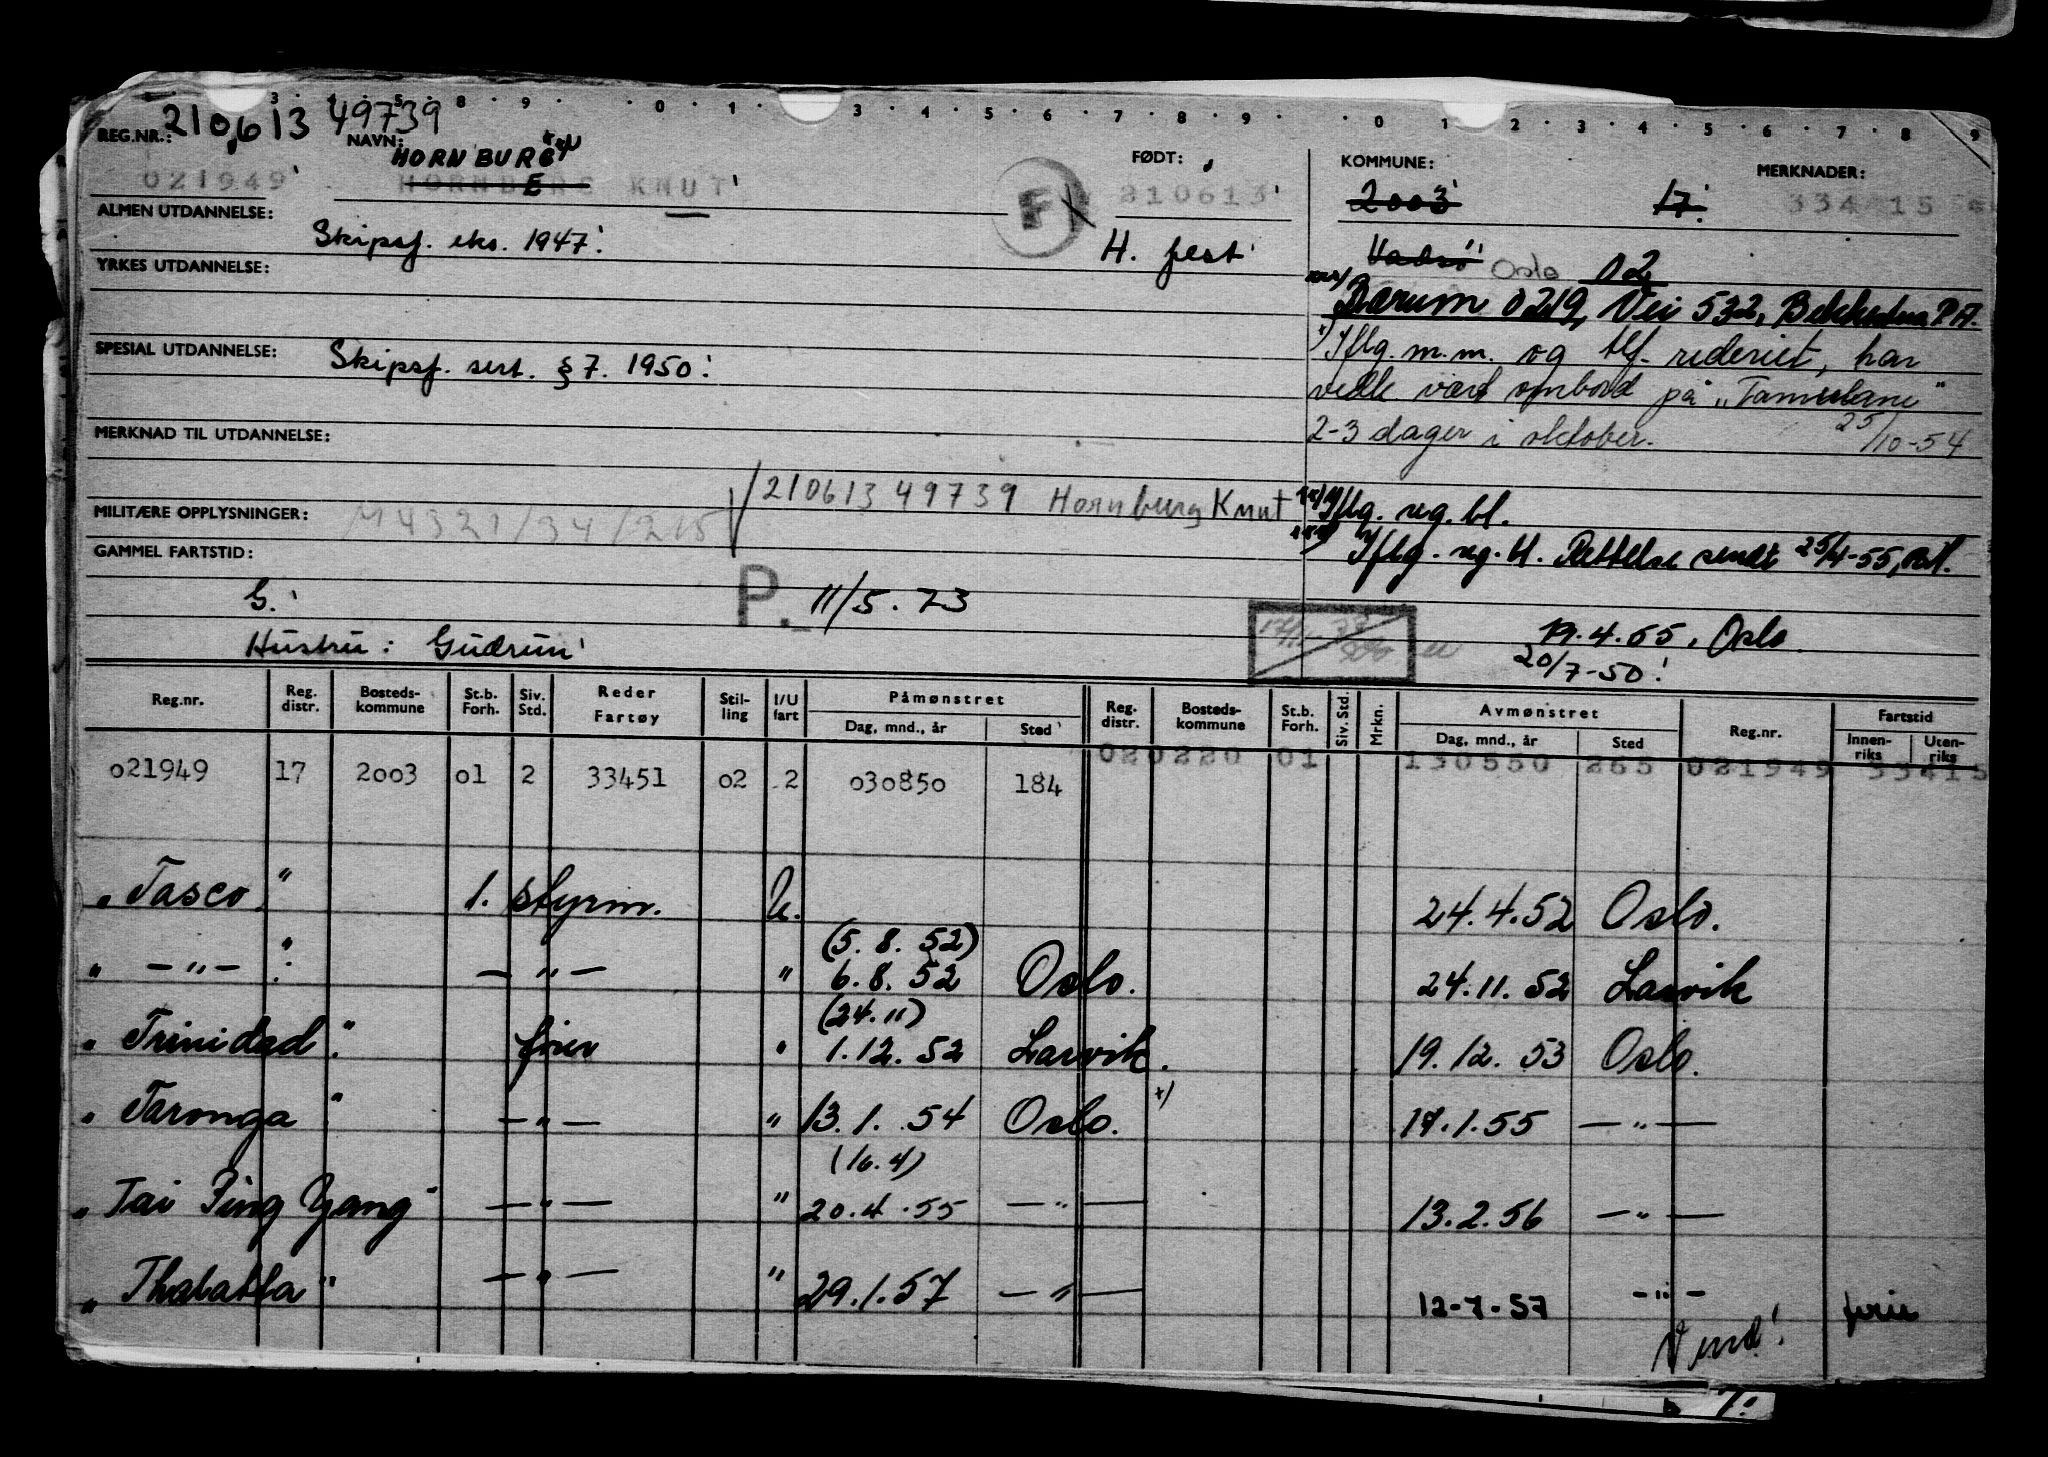 3 · 4 · 5 · 8 · 9 · · 0 · 1 · 3 · 4 · 5 · 6 · 7 · 8 · 9 · · 0 · 1 · 2 · 3 · 4 · 5 · 6 · 7 · 8 · 9
REG.NR.: 210613 49739 NAVN: FØDT: KOMMUNE: MERKNADER:
HORNBURG
021949 KNUT 210613 2003 17. 33415
F
ALMEN UTDANNELSE: Skipsf. eks. 1947. H. fest Vadsø Oslo 02
YRKES UTDANNELSE:
Bærum 0219, Vei 532, Bekkestua P.A.
SPESIAL UTDANNELSE: Skipsf. sert. §7. 1950.
x) Iflg. m.m. og tlf. rederiet, har
vedk. vært ombord på "Tamerlane"
2-3 dager i oktober. 25/10-54
MERKNAD TIL UTDANNELSE:
210613 49739 Hornburg Knut
xx) Iflg. reg. bl.
MILITÆRE OPPLYSNINGER: M4321/34/215
xxx) Iflg. reg. bl. Rettelse sendt 25/4-55,
GAMMEL FARTSTID:
G. P. 11/5.73
19.4.55, Oslo.
Hustru: Gudrun
20/7-50
Reg.nr. Reg. distr. Bosteds-kommune St.b. Forh. Siv. Std. Reder Fartøy Stil-ling I/U fart Påmønstret Dag, mnd., år Sted Reg. distr. Bosteds-kommune St.b. Forh. Siv. Std. Mrkn. Avmønstret Dag, mnd., år Sted Reg.nr. Fartstid Innen-riks Uten-riks
020220 01 130550 265 021949 33415
021949 17 2003 01 2 33451 02 2 030850 184
"Tasco" 1. styrm. U. 24.4.52 Oslo.
(5.8.52)
" — " — " — " — " 6.8.52 Oslo. 24.11.52 Larvik
(24.11)
"Trinidad" fører " 1.12.52 Larvik. 19.12.53 Oslo.
"Taronga" — " — " 13.1.54 Oslo. x) 17.1.55 — " —
(16.4)
"Tai Ping Yang" — " — " 20.4.55 — " — 13.2.56 — " —
"Thalatta" — " — " 29.1.57 — " — 12-7-57 — " —
Vend!